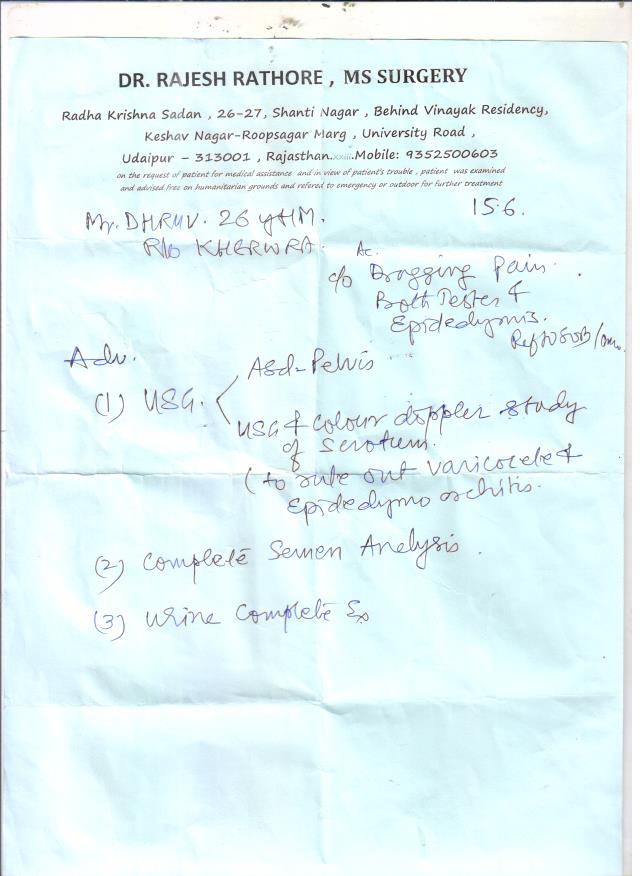 DR. RAJESH RATHORE , MS SURGERY
Radha Krishna Sadan , 26-27, Shanti Nagar , Behind Vinayak Residency,
Keshav Nagar-Roopsagar Marg , University Road ,
Udaipur – 313001 , Rajasthan.xxiii.Mobile: 9352500603
on the request of patient for medical assistance and in view of patient's trouble , patient was examined
and advised free on humanitarian grounds and refered to emergency or outdoor for further treatment
15.6.
Mr. DHRUV. 26 yHM.
R/o KHERWRA.
Ac.
c/o Dragging Pain.
Both Testes &
Epidedymis.
Adv.
(1) USG. Abd-Pelvis
USG & Colour doppler study
of Scrotum.
(to rule out varicocele &
Epidedymo orchitis.
(2) Complete Semen Analysis.
(3) Urine Complete Ex